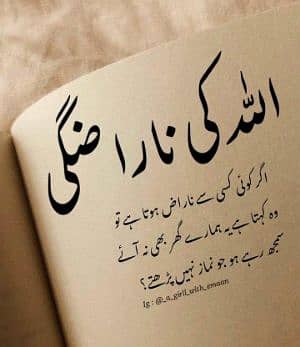 اللہ کی ناراضگی
اگر کوئی کسی سے ناراض ہوتا ہے تو
وہ کہتا ہے یہ ہمارے گھر بھی نہ آئے
سمجھ رہے ہو جو نماز نہیں پڑھتے؟
Ig : @_a_girll_with_emaan